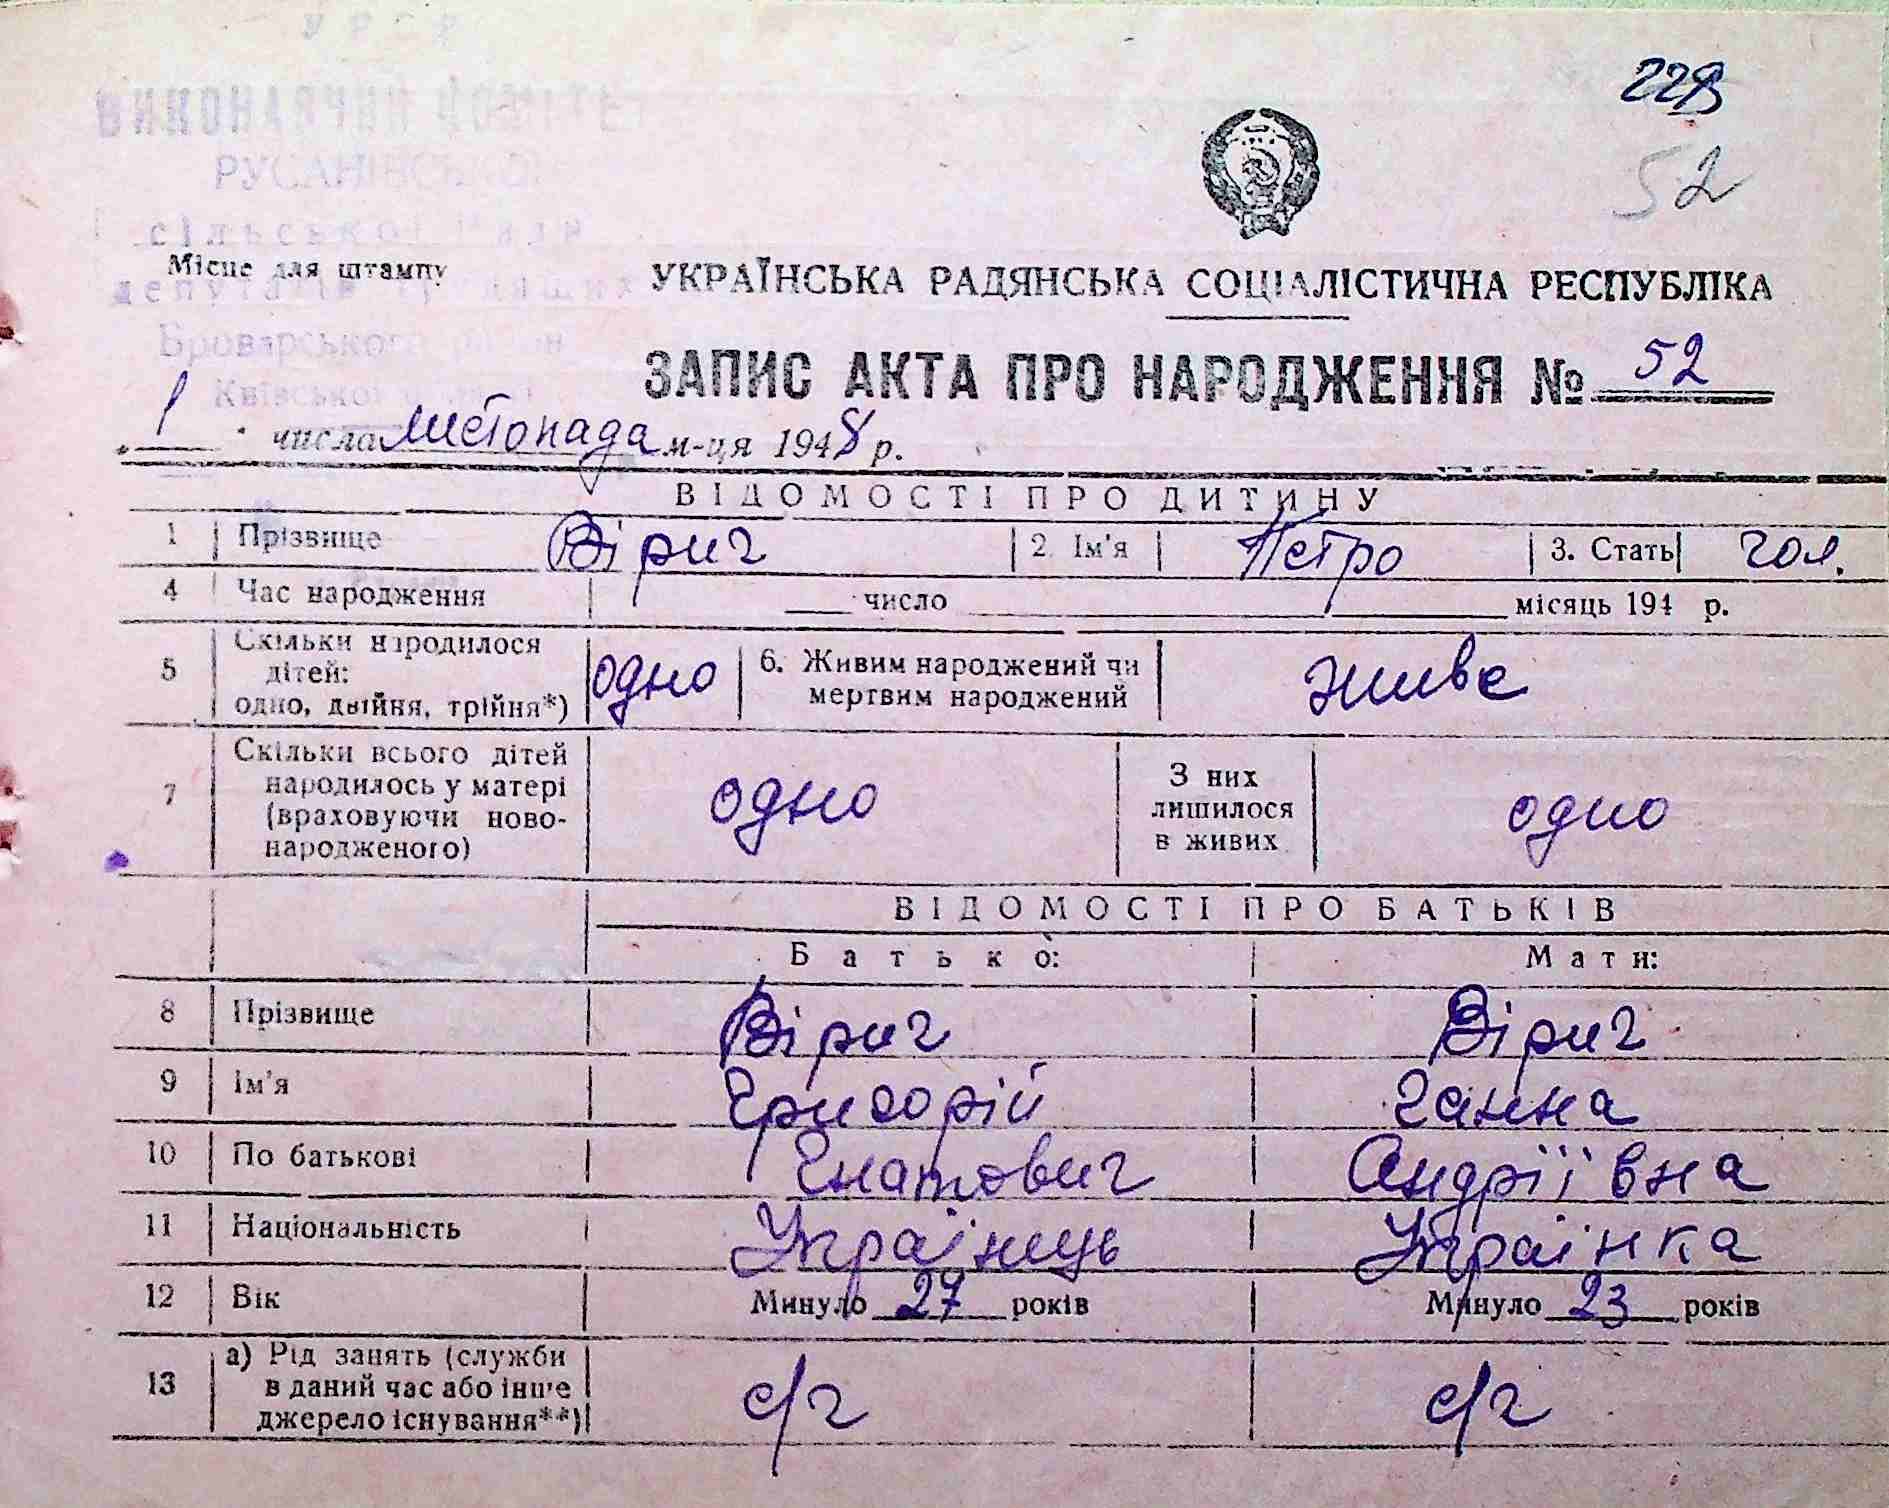 УРСР
ВИКОНАВЧИЙ КОМІТЕТ
РУСАНІВСЬКОЇ
сільської Ради
депутатів трудящих
Броварського району
Київської
Місце для штампу
229
52
УКРАЇНСЬКА РАДЯНСЬКА СОЦІАЛІСТИЧНА РЕСПУБЛІКА
ЗАПИС АКТА ПРО НАРОДЖЕННЯ № 52
„ 1 " числа листопада м-ця 1948 р.
ВІДОМОСТІ ПРО ДИТИНУ
1 Прізвище Вірич 2. Ім'я Петро 3. Стать чол.
4 Час народження число місяць 194 р.
5 Скільки народилося дітей: одно, двійня, трійня*) одно 6. Живим народжений чи мертвим народжений живе
7 Скільки всього дітей народилось у матері (враховуючи новонародженого) одно З них лишилося в живих одно
ВІДОМОСТІ ПРО БАТЬКІВ
Батько: Мати:
8 Прізвище Вірич Вірич
9 Ім'я Григорій Ганна
10 По батькові Гнатович Андріївна
11 Національність Українець Українка
12 Вік Минуло 27 років Минуло 23 років
13 а) Рід занять (служби в даний час або інше джерело існування**) с/г с/г